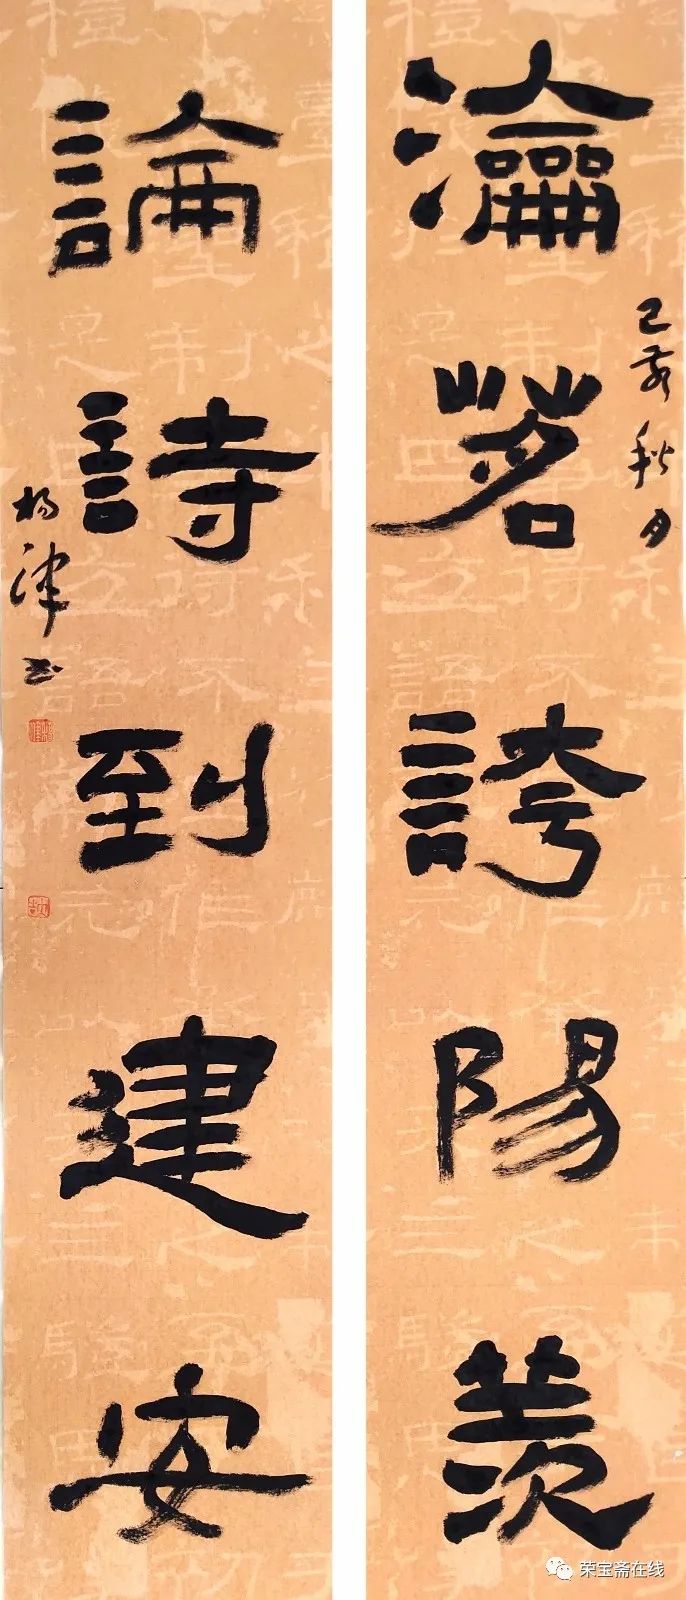 己亥秋月
瀹茗誇陽羡
論詩到建安
杨津书
荣宝斋在线